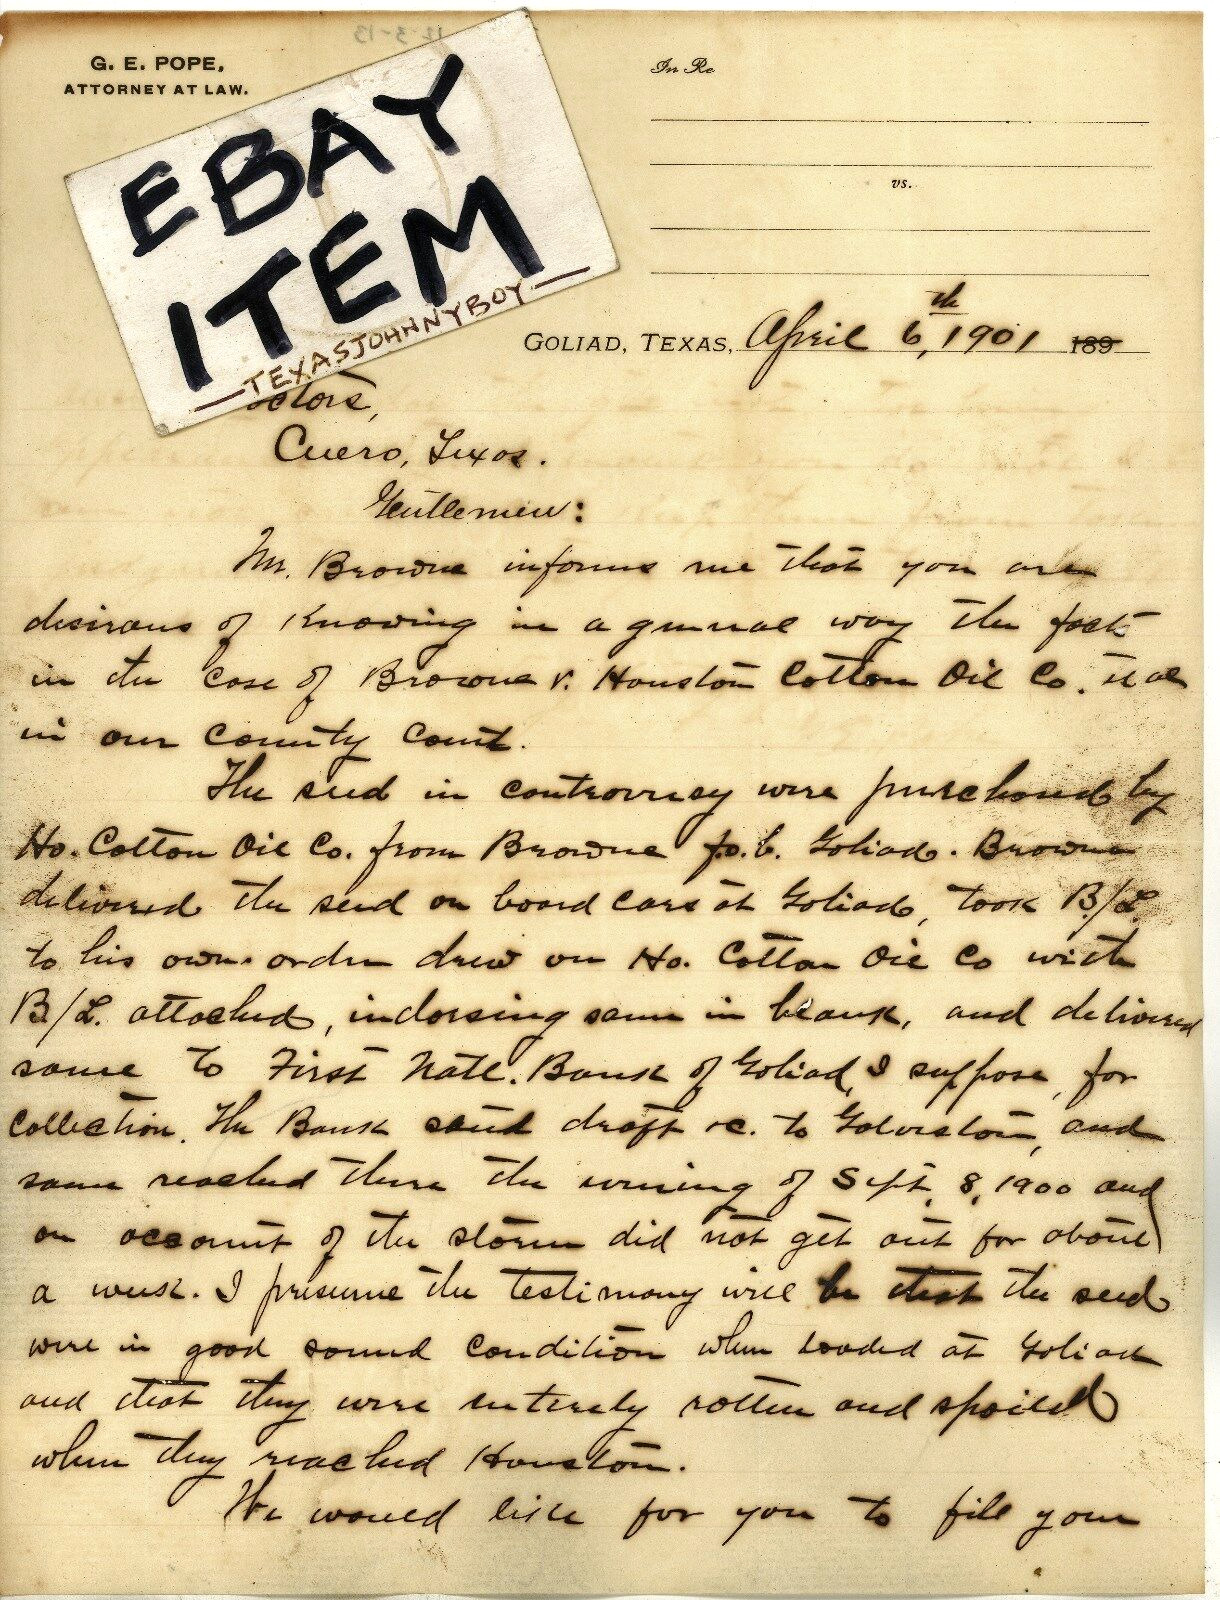 G. E. POPE,
ATTORNEY AT LAW.
In Re
vs.
EBAY
ITEM
TEXASJOHNNYBOY
GOLIAD, TEXAS, April 6th, 1901 189
Cuero, Texas.
Gentlemen:
Mr. Browne informs me that you are
desirous of knowing in a general way the facts
in the case of Browne v. Houston Cotton Oil Co. et al
in our county court.
The seed in controversy were purchased by
Ho. Cotton Oil Co. from Browne f.o.b. Goliad. Browne
delivered the seed on board cars at Goliad, took B/L.
to his own order drew on Ho. Cotton Oil Co with
B/L. attached, indorsing same in blank, and delivered
same to First Natl. Bank of Goliad, I suppose, for
collection. The Bank send draft &c. to Galveston, and
same reached there the evening of Sept. 8, 1900 and
on account of the storm did not get out for about
a week. I presume the testimony will be that the seed
were in good sound condition when loaded at Goliad
and that they were entirely rotten and spoiled
when they reached Houston.
We would like for you to file your